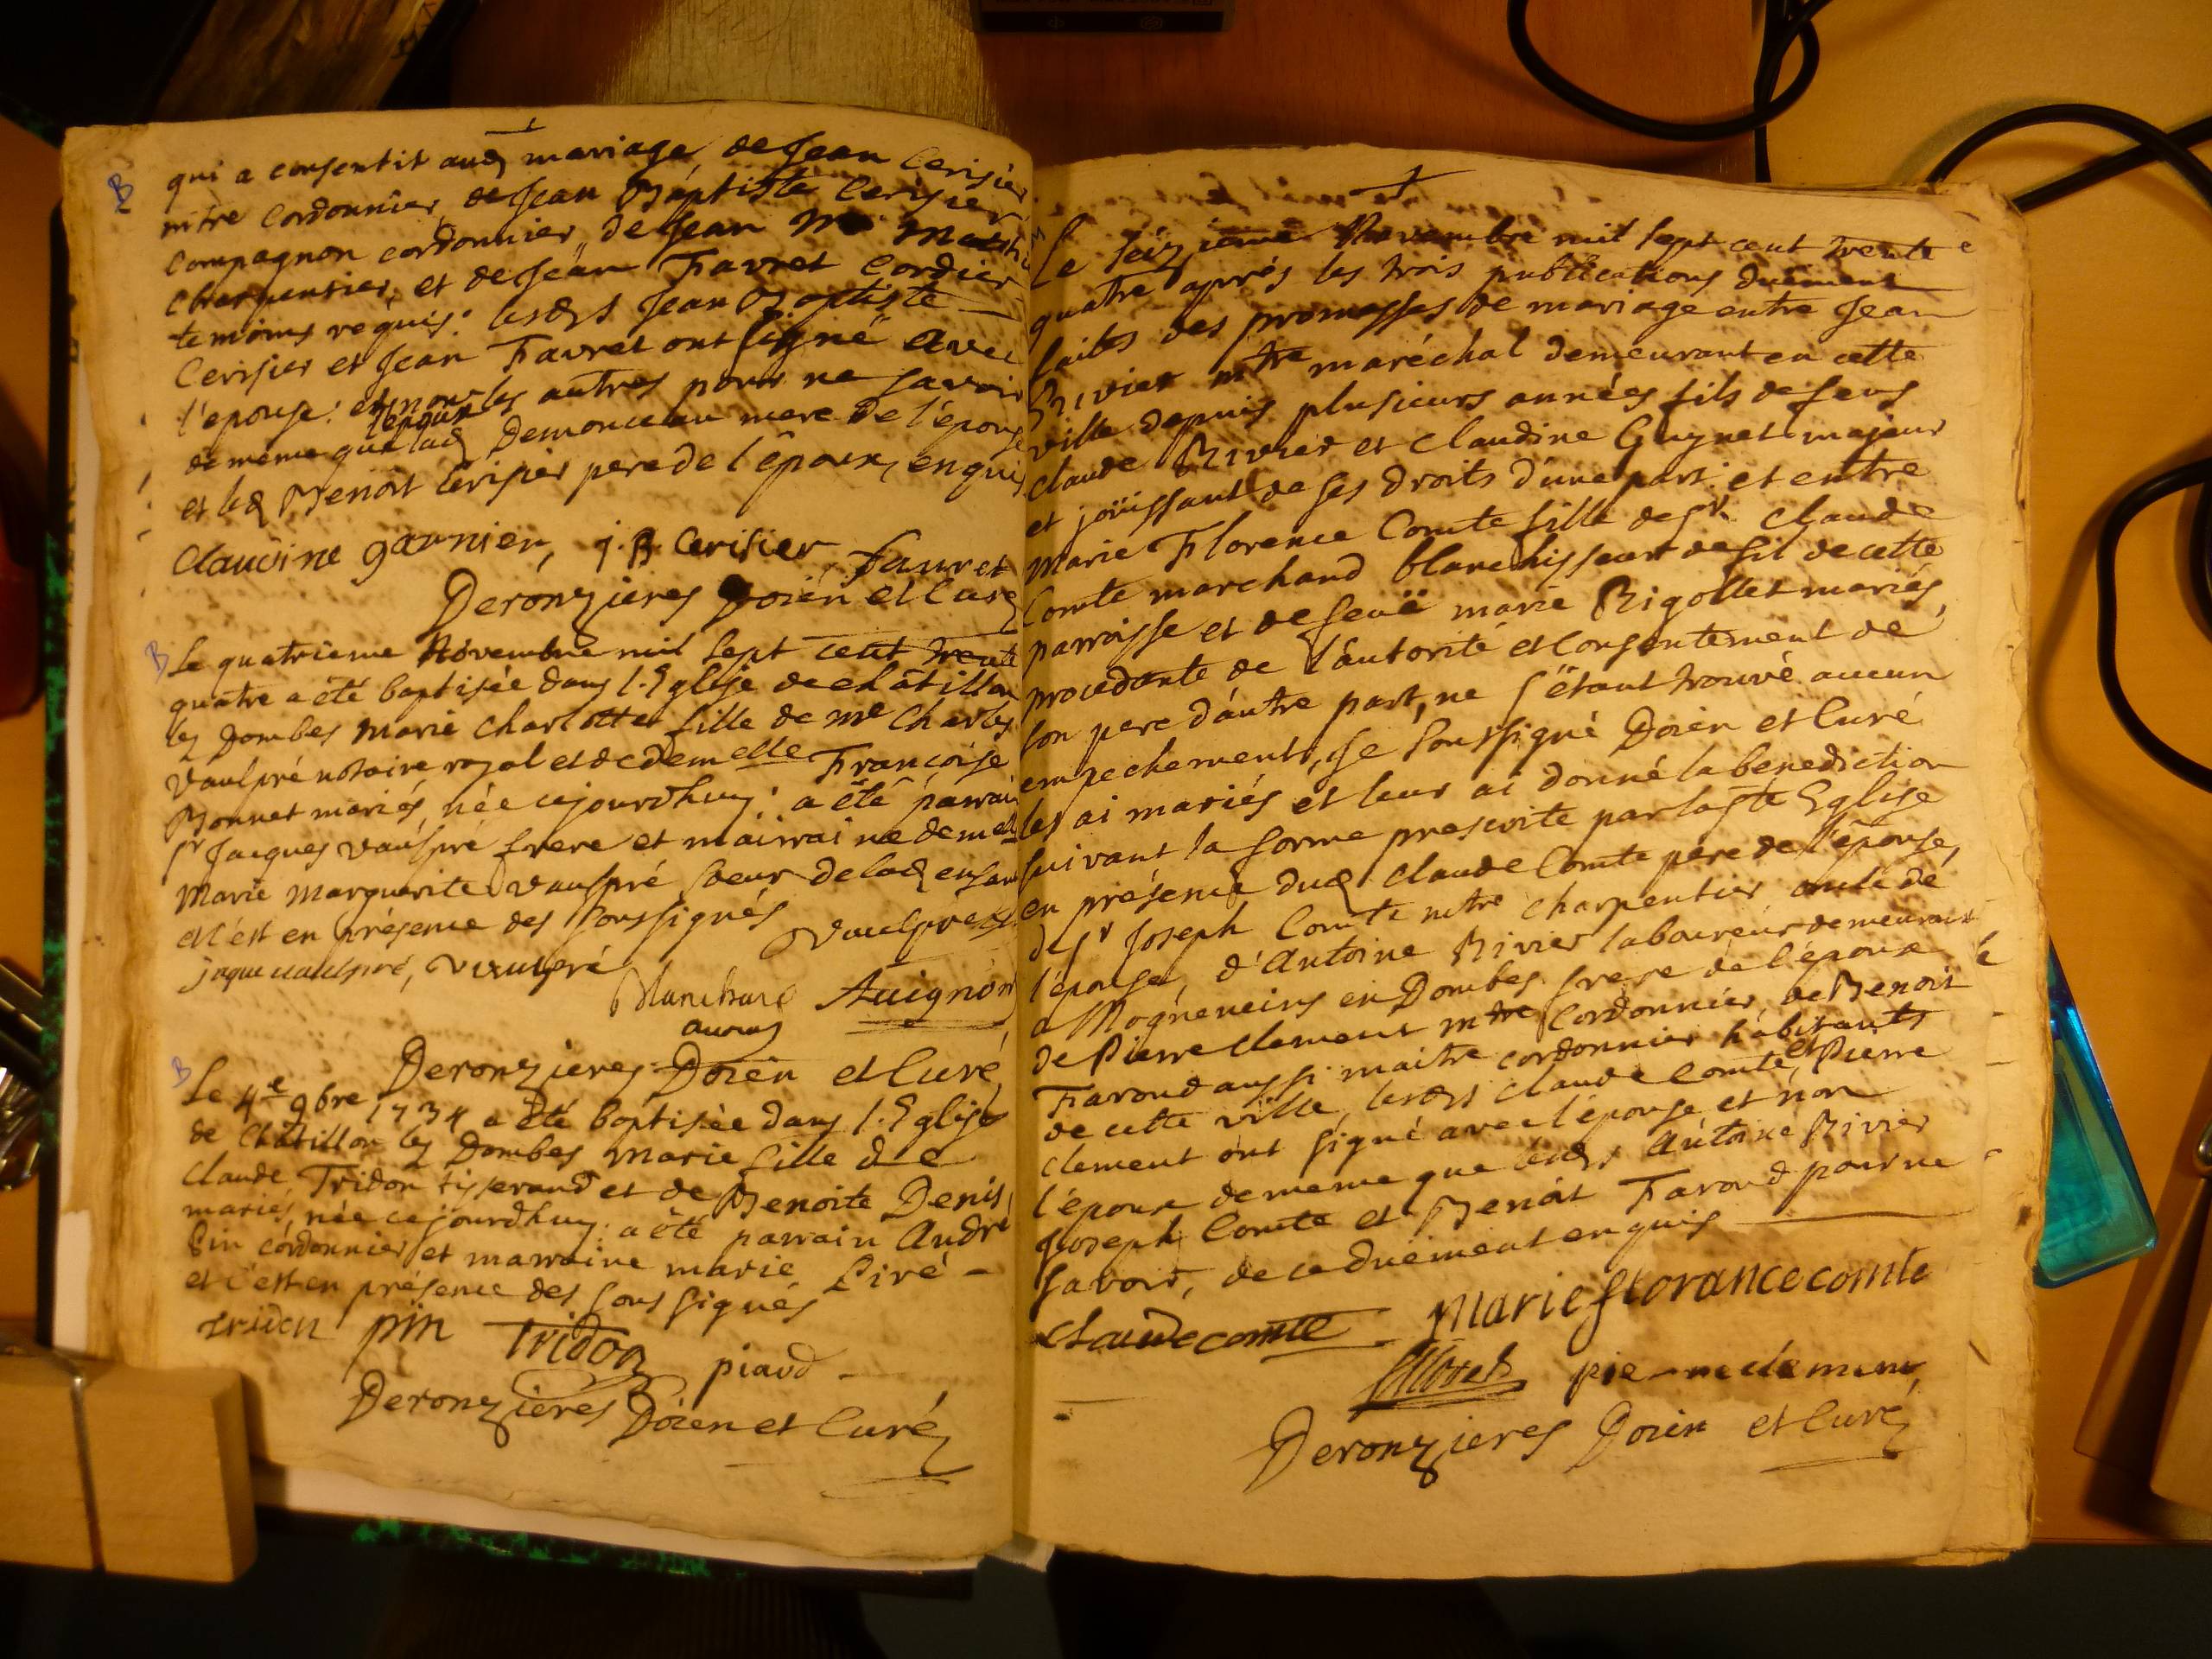 B
qui a consentit aud mariage, de Jean Cerisier
mtre Cordonnier, de Jean Baptiste Cerisier
compagnon cordonnier, de Jean
charpentier, et de Jean Favret Cordier
temoins requis: lesds Jean Baptiste
Cerisier et Jean Favret ont signé avec
l'epouse: et non les autres pour ne savoir
l'epoux
de meme que lad Demonceau mere de l'epouse
et led Benoit Cerisier pere de l'époux, enquis
Claudine garnier, j. B Cerisier Favret
Deronzieres Doïen et Curé
B
Le quatrieme Novembre mil sept cent trente
quatre a été baptisée dans l'Eglise de châtillon
les Dombes marie charlotte fille de me Charles
Vaulpré notaire royal et de demelle Françoise
Bonnet mariés, née cejourdhuy: a été parrain
sr Jacques vaulpré frere et mairraine demelle
Marie Marguerite vaulpré soeur de lad enfant
et c'est en présence des soussignés Vaulpré
jaque uaulpré, vaulpré
Blanchard Auignon
Deronzieres Doïen et Curé
B
Le 4e 9bre 1734 a été baptisée dans l'Eglise
de Châtillon les Dombes Marie fille de
Claude Tridon tisserand et de Benoite Denis
mariés, née cejourdhuy: a été parrain André
Pin cordonnier et marraine marie Piré
et c'est en présence des soussignés
tridon pin Tridon piaud
Deronzieres Doïen et Curé
Le seizieme Novembre mil sept cent trente
quatre après les trois publications duëment
faites des promesses de mariage entre Jean
Rivier mtre maréchal demeurant en cette
ville depuis plusieurs années fils de feus
Claude Rivier et Claudine Guynet majeur
et joüissant de ses droits d'une part: et entre
Marie Florence Comte fille de sr Claude
Comte marchand blanchisseur de fil de cette
parroisse et de feuë marie Rigollet mariés,
procedante de l'autorité et consentement de
son pere d'autre part, ne s'étant trouvé aucun
empechement, Je soussigné Doïen et Curé
les ai mariés et leur ai donné la benediction
suivant la forme prescrite par la ste Eglise
en présence dud Claude Comte pere de l'épouse,
de sr Joseph Comte mtre charpentier oncle de
l'épouse, d'Antoine Rivier laboureur demeurant
a Mogneneins en Dombes frere de l'époux
de Pierre Clement mtre Cordonnier, de Benoit
Faroud aussi maitre cordonnier habitants
de cette ville, lesds Claude Comte, et Pierre
Clement ont signé avec l'épouse, et non
l'époux de meme que lesds Antoine Rivier
Joseph Comte et Benoit Faroud pour ne
savoir, de ce duëment enquis
claude comte Marie florance comte
pierre clement
Deronzieres Doïen et Curé